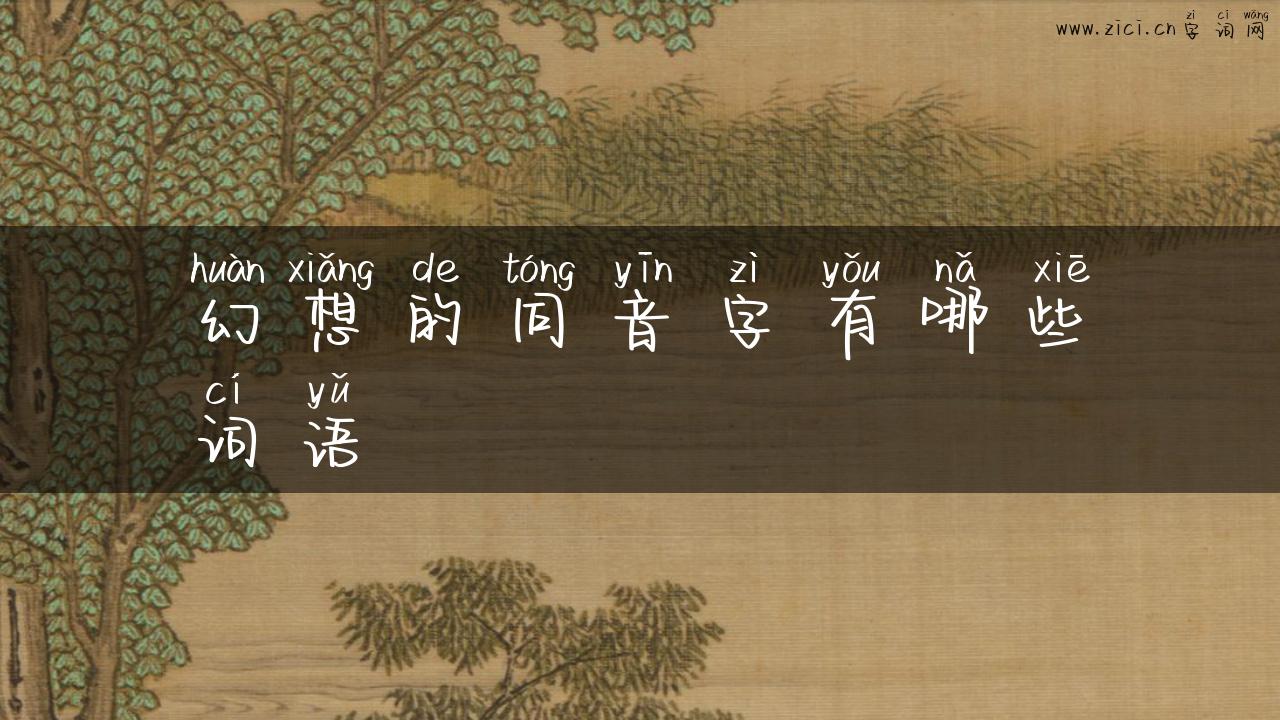 zì cí wǎng
www.zici.cn 字词网
huàn xiǎng de tóng yīn zì yǒu nǎ xiē
幻想的同音字有哪些
cí yǔ
词语